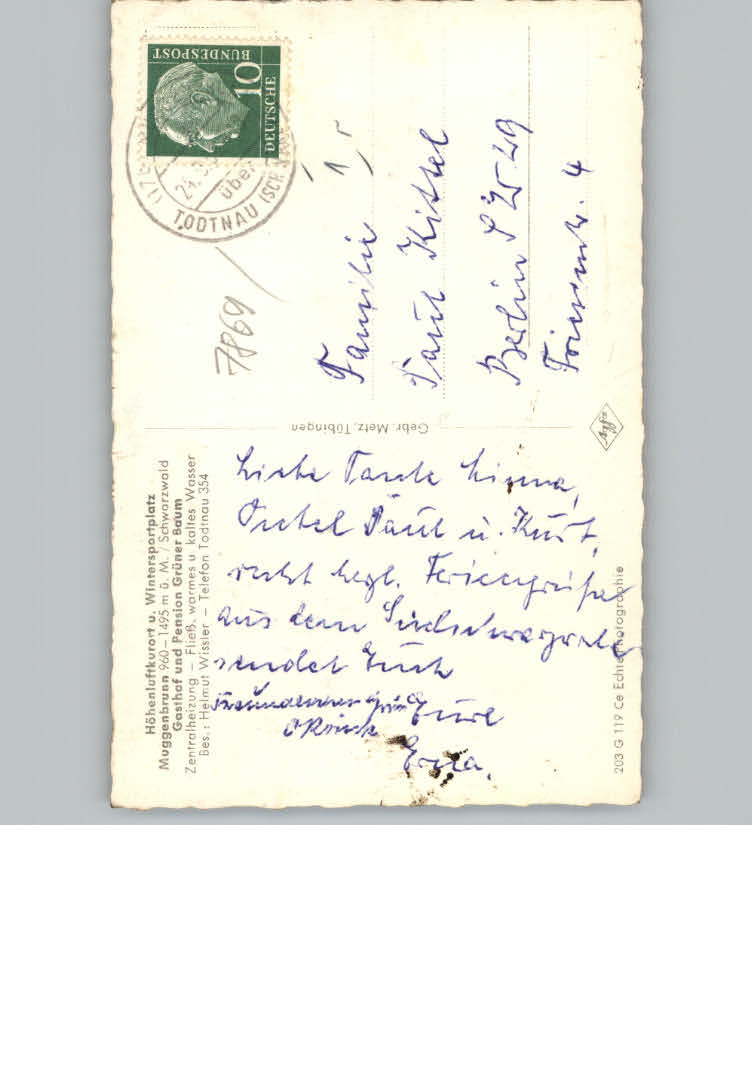 Höhenluftkurort u. Wintersportplatz
Muggenbrunn 960–1495 m ü. M. / Schwarzwald
Gasthof und Pension Grüner Baum
Zentralheizung – Fließ. warmes u. kaltes Wasser
Bes.: Helmut Wissler – Telefon Todtnau 354
Liebe Tante Minna,
Onkel Paul u. Kurt,
recht herzl. Feriengrüße
aus dem Südschwarzwald
sendet Euch
Eure
Erna.
Gebr. Metz, Tübingen
203 G 119 Ce Echte Photographie
Agfa
DEUTSCHE
BUNDESPOST
10
(17
über
TODTNAU (SCHWARZW
7869
Familie
Paul Kittel
Berlin